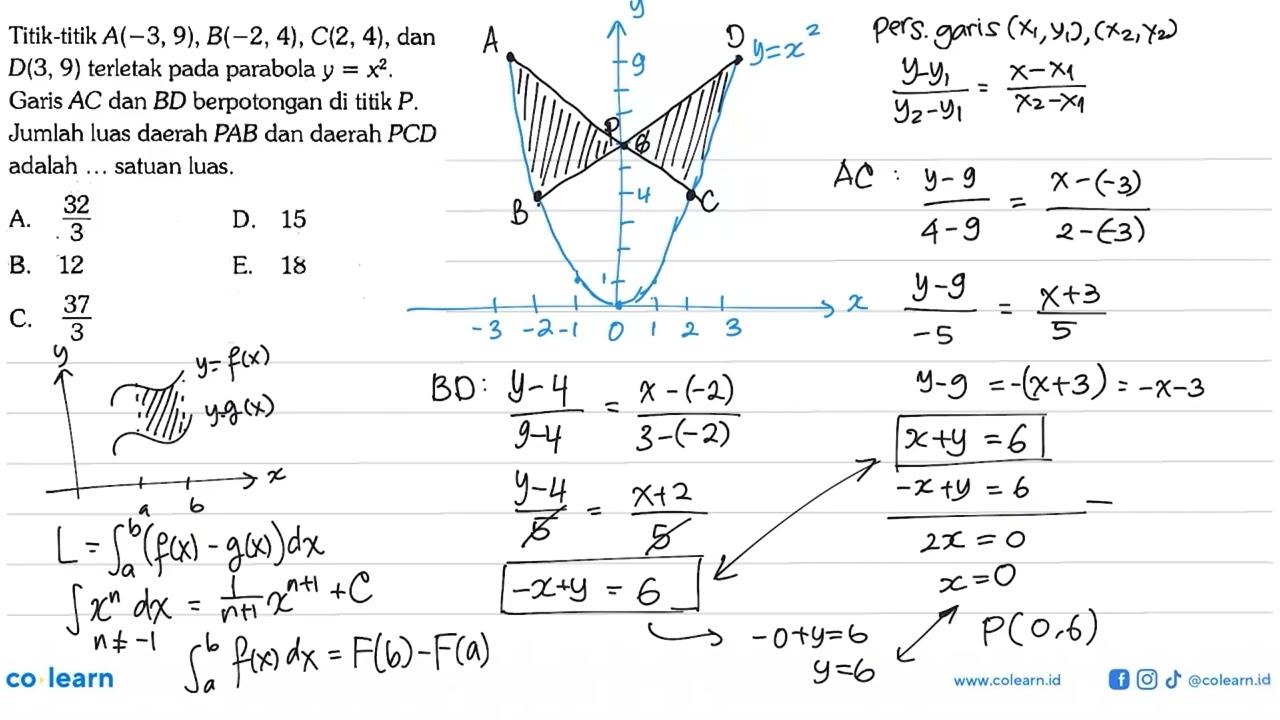 Titik-titik A(−3, 9), B(−2, 4), C(2, 4), dan
D(3, 9) terletak pada parabola y = x².
Garis AC dan BD berpotongan di titik P.
Jumlah luas daerah PAB dan daerah PCD
adalah ... satuan luas.
A. 32/3
D. 15
B. 12
E. 18
C. 37/3
y
A
D
y=x²
9
P
6
B
4
C
1
-3 -2 -1 0 1 2 3
x
Pers. garis (x₁, y₁), (x₂, y₂)
(y-y₁)/(y₂-y₁) = (x-x₁)/(x₂-x₁)
AC : (y-9)/(4-9) = (x-(-3))/(2-(-3))
(y-9)/-5 = (x+3)/5
y-9 = -(x+3) = -x-3
x+y = 6
-x+y = 6 −
2x = 0
x = 0
P(0,6)
BD : (y-4)/(9-4) = (x-(-2))/(3-(-2))
(y-4)/5 = (x+2)/5
-x+y = 6
-0+y=6
y=6
y
y=f(x)
y=g(x)
x
a b
L = ∫ₐᵇ (f(x) - g(x)) dx
∫ xⁿ dx = 1/(n+1) xⁿ⁺¹ + C
n ≠ -1
∫ₐᵇ f(x) dx = F(b) - F(a)
co learn
www.colearn.id
@colearn.id